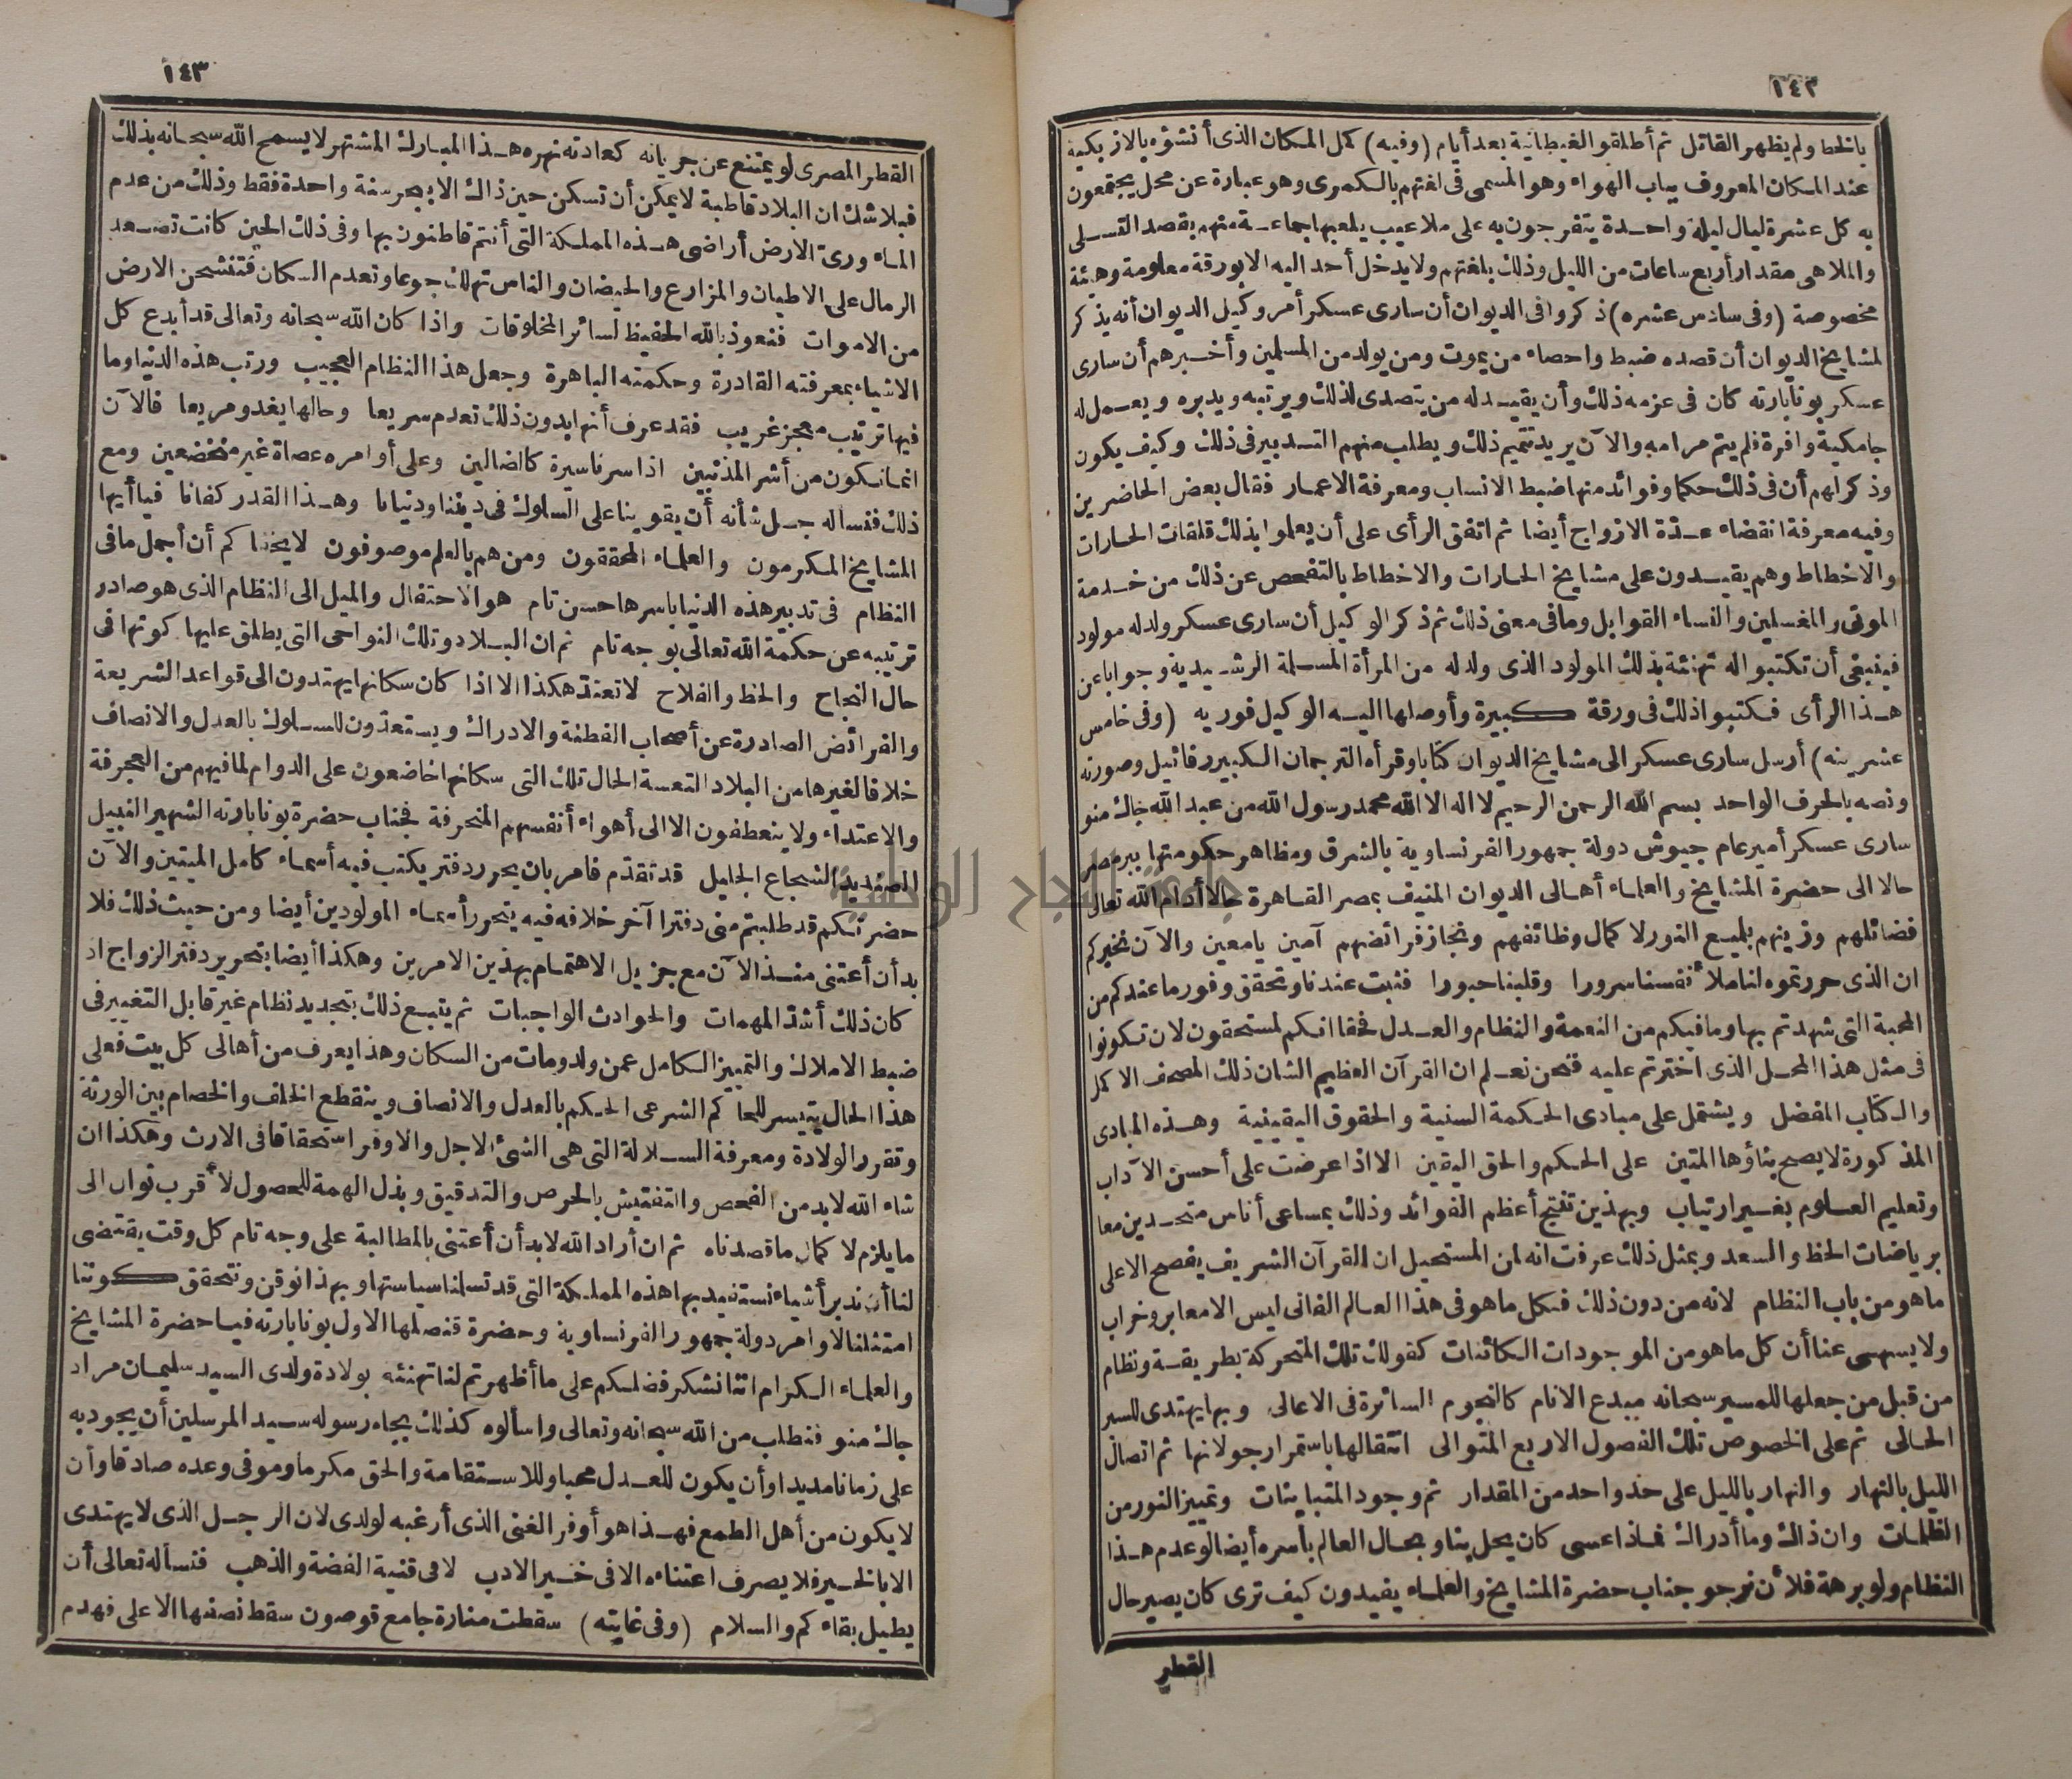 ١٤٢
بالخط ولم يظهر القاتل ثم أطلقوا الغيطانية بعد أيام (وفيه) كمل المكان الذى أنشؤه بالازبكية
عند المكان المعروف بباب الهواء وهو المسمى فى لغتهم بالكمرى وهو عبارة عن محل يجتمعون
به كل عشرة ليال ليلة واحدة يتفرجون به على ملاعيب يلعبها جماعة منهم بقصد التسلى
والملاهى مقدار أربع ساعات من الليل وذلك بلغتهم ولا يدخل أحد اليه الا بورقة معلومة وهيئة
مخصوصة (وفى سادس عشره) ذكروا فى الديوان أن سارى عسكر أمر وكيل الديوان أنه يذكر
لمشايخ الديوان أن قصده ضبط واحصاء من يموت ومن يولد من المسلمين وأخبرهم أن سارى
عسكر بونابارته كان فى عزمه ذلك وأن يقيد له من يتصدى لذلك ويرتبه ويدبره ويعمل له
جامكية وافرة فلم يتم مرامه والآن يريد تتميم ذلك ويطلب منهم التدبير فى ذلك وكيف يكون
وذكر لهم أن فى ذلك حكما وفوائد منها ضبط الانساب ومعرفة الاعمار فقال بعض الحاضرين
وفيه معرفة انقضاء عدة الازواج أيضا ثم اتفق الرأى على أن يعلموا بذلك قلقات الحارات
والاخطاط وهم يقيدون على مشايخ الحارات والاخطاط بالتفحص عن ذلك من خدمة
الموتى والمغسلين والنساء القوابل وما فى معنى ذلك ثم ذكر الوكيل أن سارى عسكر ولد له مولود
فينبغى أن تكتبوا له تهنئة بذلك المولود الذى ولد له من المرأة المسلمة الرشيدية وجوابا عن
هذا الرأى فكتبوا ذلك فى ورقة كبيرة وأوصلها اليه الوكيل فوريه (وفى خامس
عشرينه) أرسل سارى عسكر الى مشايخ الديوان كتابا وقرأه الترجمان الكبير رفائيل وصورته
ونصه بالحرف الواحد بسم الله الرحمن الرحيم لا اله الا الله محمد رسول الله من عبد الله جاك منو
سارى عسكر أمير عام جيوش دولة جمهور الفرنساوية بالشرق ومظاهر حكومتها ببر مصر
حالا الى حضرة المشايخ والعلماء أهالى الديوان المنيف بمصر القاهرة حالا أدام الله تعالى
فضائلهم وزينهم بلميع النور لاكمال وظائفهم ونجاز فرائضهم آمين يا معين والآن نخبركم
ان الذى حررتموه لنا ملأ نفسنا سرورا وقلبنا حبورا فثبت عندنا وتحقق وفور ما عندكم من
المحبة التى شهدتم بها وما فيكم من النعمة والنظام والعدل فحقا انكم لمستحقون لان تكونوا
فى مثل هذا المحل الذى اخترتم عليه فنحن نعلم ان القرآن العظيم الشان ذلك المصحف الاكمل
والكتاب المفضل ويشتمل على مبادى الحكمة السنية والحقوق اليقينية وهذه المبادى
المذكورة لا يصح بناؤها المتين على الحكم والحق اليقين الا اذا عرضت على أحسن الآداب
وتعليم العلوم بغير ارتياب وبهذين تنتج أعظم الفوائد وذلك بمساعى أناس متحدين معا
برباضات الحظ والسعد وبمثل ذلك عرفت انه لمن المستحيل ان القرآن الشريف يفصح الا على
ما هو من باب النظام لانه من دون ذلك فكل ما هو فى هذا العالم الفانى ليس الا معابر وخراب
ولا يسهى عنا أن كل ما هو من الموجودات الكائنات كقولك تلك المتحركة بطريقة ونظام
من قبل من جعلها للمسير سبحانه مبدع الانام كالنجوم السائرة فى الاعالى وبها يهتدى للسير
الحالى ثم على الخصوص تلك الفصول الاربع المتوالى انتقالها باستمرار جولانها ثم اتصال
الليل بالنهار والنهار بالليل على حد واحد من المقدار ثم وجود المتباينات وتمييز النور من
الظلمات وان ذاك وما أدراك فماذا عسى كان يحل بنا وبحال العالم بأسره أيضا لو عدم هذا
النظام ولو برهة فلأن نرجو جناب حضرة المشايخ والعلماء يفيدون كيف ترى كان يصير حال
القطر
١٤٣
القطر المصرى لو يمتنع عن جريانه كعادته نهره هذا المبارك المشتهر لا يسمح الله سبحانه بذلك
فبلا شك ان البلاد قاطبة لا يمكن أن تسكن حين ذاك الا بهر سنة واحدة فقط وذلك من عدم
الماء ورى الارض أراضى هذه المملكة التى أنتم قاطنون بها وفى ذلك الحين كانت تصعد
الرمال على الاطيان والمزارع والحيضان والناس تهلك جوعا وتعدم السكان فتنشحن الارض
من الاموات فنعوذ بالله الحفيظ لسائر المخلوقات واذا كان الله سبحانه وتعالى قد أبدع كل
الاشياء بمعرفته القادرة وحكمته الباهرة وجعل هذا النظام العجيب ورتب هذه الدنيا وما
فيها ترتيب معجز غريب فقد عرف أنها بدون ذلك تعدم سريعا وحالها يغدو مريعا فالآن
انما نكون من أشر المذنبين اذا سرنا سيرة كالضالين وعلى أوامره عصاة غير منخضعين ومع
ذلك فنسأله جل شأنه أن يقوينا على السلوك فى ديننا ودنيانا وهذا القدر كفانا فيا أيها
المشايخ المكرمون والعلماء المحققون ومن هم بالعلم موصوفون لا يخفاكم أن أجمل ما فى
النظام فى تدبير هذه الدنيا باسرها حسن تام هو الاحتفال والميل الى النظام الذى هو صادر
ترتيبه عن حكمة الله تعالى بوجه تام ثم ان البلاد وتلك النواحى التى يطلق عليها كونها فى
حال النجاح والحظ والفلاح لا تعتد هكذا الا اذا كان سكانها يهتدون الى قواعد الشريعة
والفرائض الصادرة عن أصحاب الفطنة والادراك ويستعدون للسلوك بالعدل والانصاف
خلافا لغيرها من البلاد التعسة الحال تلك التى سكانها خاضعون على الدوام لما فيهم من العجرفة
والاعتداء ولا ينعطفون الا الى أهواء أنفسهم المنحرفة فجناب حضرة بونابارته الشهير النبيل
الصنديد الشجاع الجليل قد تقدم فامر بان يحرر دفتر يكتب فيه أسماء كامل الميتين والآن
حضرتكم قد طلبتم منى دفترا آخر خلافه فيه يتحرر أسماء المولودين أيضا ومن حيث ذلك فلا
بد أن أعتنى منذ الآن مع جزيل الاهتمام بهذين الامرين وهكذا أيضا بتحرير دفتر الزواج اذ
كان ذلك أشد المهمات والحوادث الواجبات ثم يتبع ذلك بتجديد نظام غير قابل التغيير فى
ضبط الاملاك والتمييز الكامل عمن ولد ومات من السكان وهذا يعرف من أهالى كل بيت فعلى
هذا الحال يتيسر للحاكم الشرعى الحكم بالعدل والانصاف وينقطع الخلف والخصام بين الورثة
وتقرر الولادة ومعرفة السلالة التى هى الشئ الاجل والاوفر استحقاقا فى الارث وهكذا ان
شاء الله لا بد من الفحص والتفتيش بالحرص والتدقيق وبذل الهمة للحصول لأقرب نوال الى
ما يلزم لاكمال ما قصدناه ثم ان أراد الله لا بد أن أعتنى بالمطالبة على وجه تام كل وقت يقتضى
لنا أن ندبر أشياء نستفيد بها هذه المملكة التى قد تسلمنا سياستها وبهذا نوقن ونتحقق كوننا
امتثلنا لاوامر دولة جمهور الفرنساوية وحضرة قنصلها الاول بونابارته فيا حضرة المشايخ
والعلماء الكرام اننا نشكر فضلكم على ما أظهرتم لنا تهنئه بولادة ولدى السيد سليمان مراد
جاك منو فنطلب من الله سبحانه وتعالى واسألوه كذلك بجاه رسوله سيد المرسلين أن يجود به
على زمانا مديدا وأن يكون للعدل محبا وللاستقامة والحق مكرما وموفى وعده صادقا وأن
لا يكون من أهل الطمع فهذا هو أوفر الغنى الذى أرغبه لولدى لان الرجل الذى لا يهتدى
الا بالخيرة لا يصرف اعتناءه الا فى خير الادب لا فى قنية الفضة والذهب فنسأله تعالى أن
يطيل بقاءكم والسلام (وفى غايته) سقطت منارة جامع قوصون سقط نصفها الاعلى فهدم
جامعة النجاح الوطنية